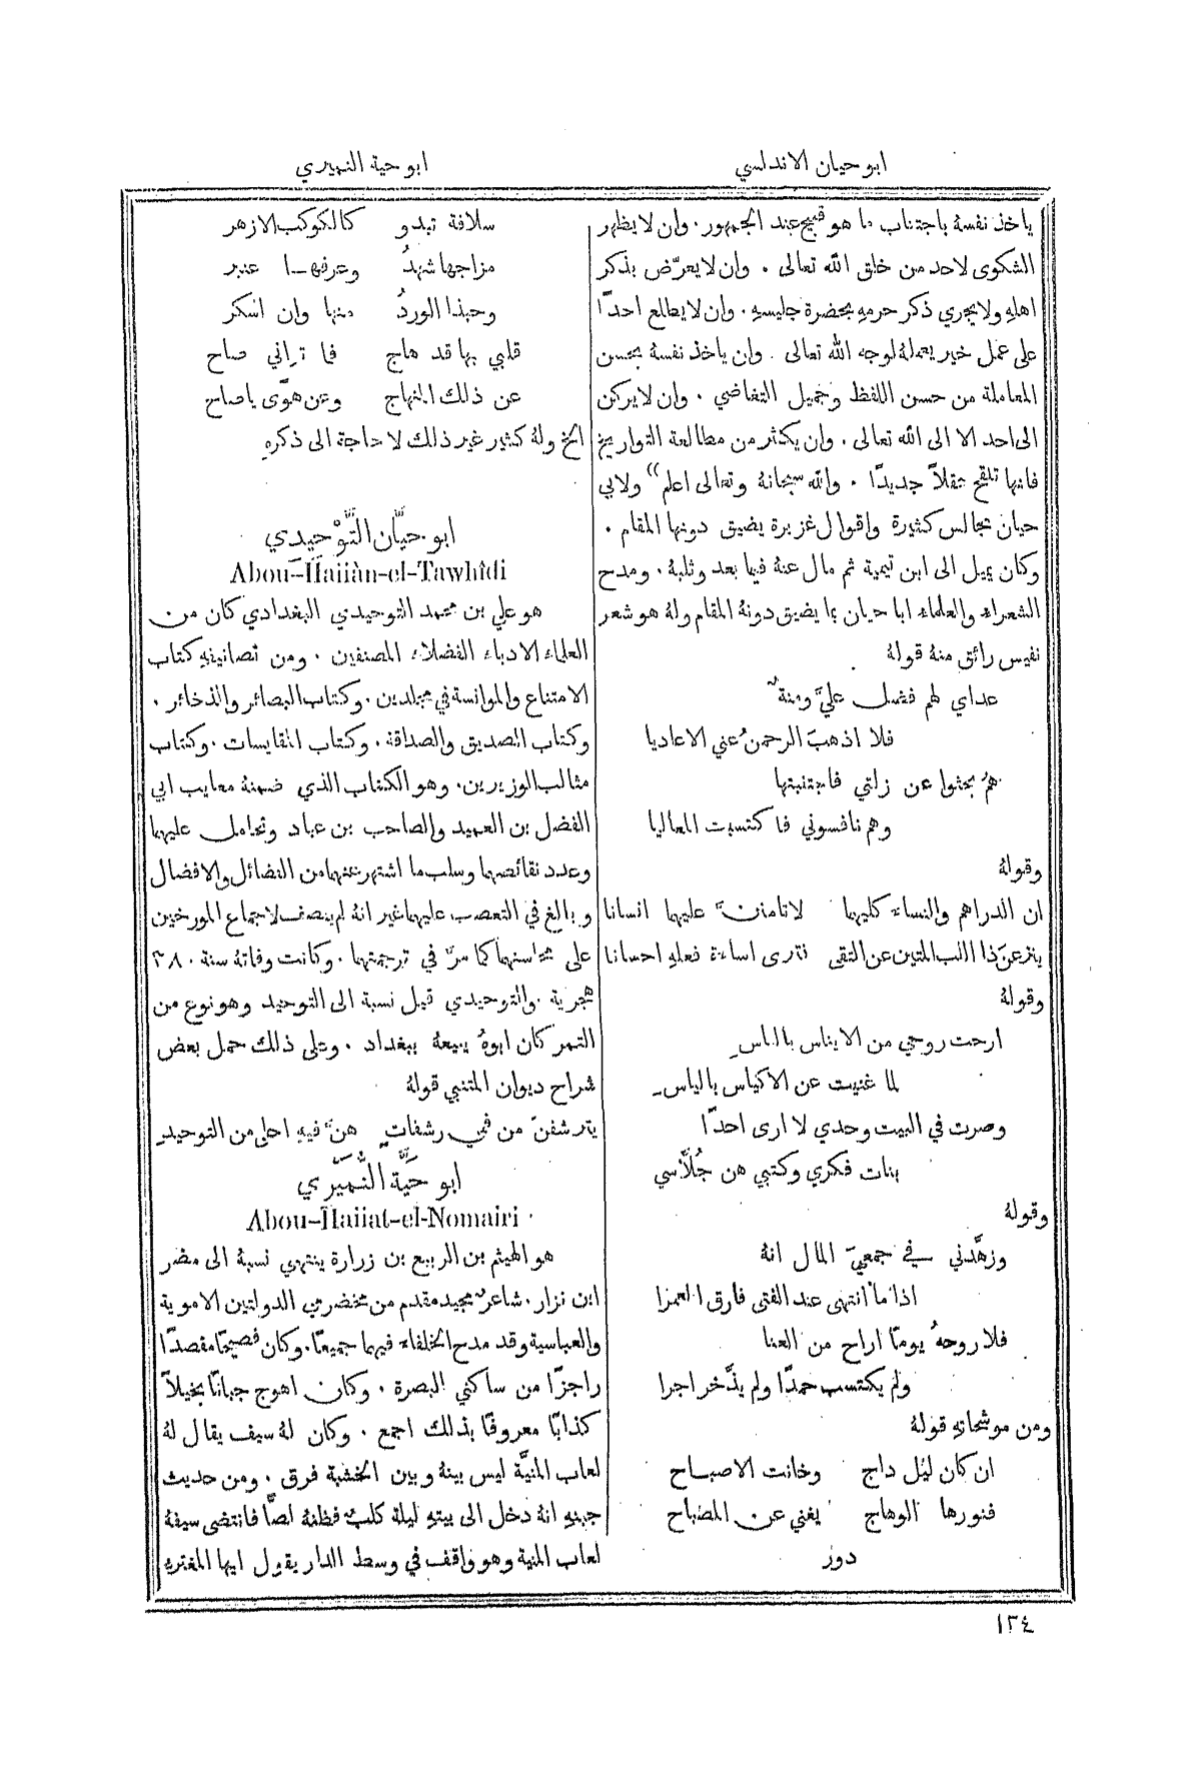 ابو حيان الاندلسي
ابو حية النميري
ياخذ نفسهُ باجتناب ما هو قبيح عند الجمهور. وان لا يظهر
الشكوى لاحد من خلق الله تعالى. وان لا يعرّض بذكر
اهلهِ ولا يجري ذكر حرمهِ بحضرة جليسهِ. وان لا يطالع احدًا
على عمل خير يعملهُ لوجه الله تعالى. وان ياخذ نفسهُ بحسن
المعاملة من حسن اللفظ وجميل التغاضي. وان لا يركن
الى احد الا الى الله تعالى. وان يكثر من مطالعة التواريخ
فانها تلقح عقلاً جديدًا. والله سبحانهُ وتعالى اعلم» ولابي
حيان مجالس كثيرة واقوال غزيرة يضيق دونها المقام.
وكان يميل الى ابن تيمية ثم مال عنهُ فيما بعد وثلبهُ. ومدح
الشعراء والعلماء ابا حيان بما يضيق دونهُ المقام ولهُ هو شعر
نفيس رائق منهُ قولهُ
عداي لهم فضل عليَّ ومنةٌ
فلا اذهبَ الرحمنُ عني الاعاديا
همُ بحثوا عن زلتي فاجتنبتها
وهم نافسوني فاكتسبت المعاليا
وقولهُ
ان الدراهم والنساء كليهما لا تامننَّ عليهما انسانا
ينزعنَ ذا اللب المتين عن التقى فترى اساءة فعلهِ احسانا
وقولهُ
ارحت روحي من الايناس بالناسِ
لما غنيت عن الاكياس بالياسِ
وصرت في البيت وحدي لا ارى احدًا
بنات فكري وكتبي هن جُلَّاسي
وقولهُ
وزهَّدني في جمعيَ المال انهُ
اذا ما انتهى عند الفتى فارق العمرا
فلا روحهُ يومًا اراح من العنا
ولم يكتسب حمدًا ولم يدَّخر اجرا
ومن موشحاتهِ قولهُ
ان كان ليل داج وخانت الاصباح
فنورها الوهاج يغني عن المصباح
دور
سلافة تبدو كالكوكب الازهر
مزاجها شهدُ وعرفها عنبر
وحبذا الوردُ منها وان اسكر
قلبي بها قد هاج فما تراني صاح
عن ذلك المنهاج وعن هوًى يا صاح
الخ ولهُ كثير غير ذلك لا حاجة الى ذكرهِ
ابو حيَّان التَّوْحِيدي
Abou-Haiiàn-el-Tawhîdi
هو علي بن محمد التوحيدي البغدادي كان من
العلماء الادباء الفضلاء المصنفين. ومن تصانيفهِ كتاب
الامتناع والموانسة في مجلدين. وكتاب البصائر والذخائر.
وكتاب الصديق والصداقة. وكتاب المقايسات. وكتاب
مثالب الوزيرين. وهو الكتاب الذي ضمنهُ معايب ابي
الفضل بن العميد والصاحب بن عباد وتحامل عليهما
وعدد نقائصهما وسلب ما اشتهر عنهما من الفضائل والافضال
وبالغ في التعصب عليهما غير انهُ لم ينصف لاجماع المورخين
على محاسنهما كما مرَّ في ترجمتهما. وكانت وفاتهُ سنة ٣٨٠
هجرية. والتوحيدي قيل نسبة الى التوحيد وهو نوع من
التمر كان ابوهُ يبيعهُ ببغداد. وعلى ذلك حمل بعض
شراح ديوان المتنبي قولهُ
يترشفنَ من فمي رشفاتٍ هنَّ فيهِ احلى من التوحيدِ
ابو حَيَّة النُّمَيْرِي
Abou-Haiiat-el-Nomairi
هو الهيثم بن الربيع بن زرارة ينتهي نسبهُ الى مضر
ابن نزار. شاعر مجيد مقدم من مخضرمي الدولتين الاموية
والعباسية وقد مدح الخلفاء فيهما جميعًا. وكان فصيحًا مقصدًا
راجزًا من ساكني البصرة. وكان اهوج جبانًا بخيلاً
كذابًا معروفًا بذلك اجمع. وكان لهُ سيف يقال لهُ
لعاب المنيَّة ليس بينهُ وبين الخشبة فرق. ومن حديث
جبنهِ انهُ دخل الى بيتهِ ليلة كلب فظنهُ لصًّا فانتضى سيفهُ
لعاب المنية وهو واقف في وسط الدار يقول ايها المغتر بهِ
١٣٤